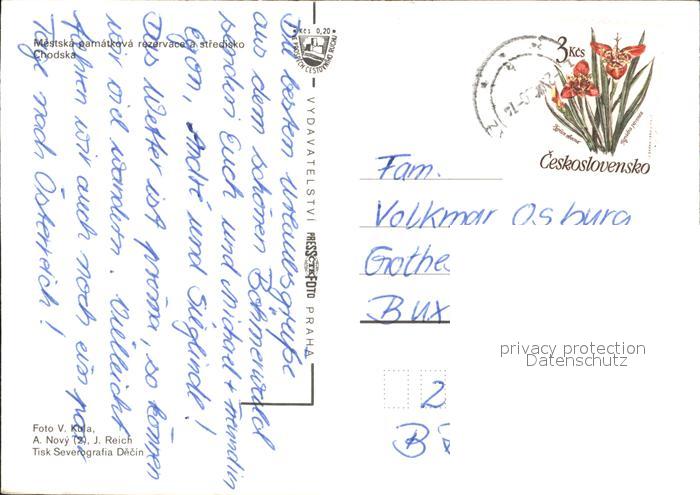 Městská památková rezervace a středisko
Chodska
Die besten Urlaubsgrüße
aus dem schönen Böhmerwald
senden Euch und Michael + Freundin
Egon, André und Sieglinde!
Das Wetter ist prima, so können
wir viel wandern. Vielleicht
fahren wir auch noch ein paar
Tage nach Österreich!
Foto V. Kula,
A. Nový (2), J. Reich
Tisk Severografia Děčín
Kčs 0,20
VYDAVATELSTVÍ PRESSFOTO PRAHA
3 Kčs
Československo
Fam.
Volkmar Osburg
Gothe
Bux
2
B
privacy protection
Datenschutz